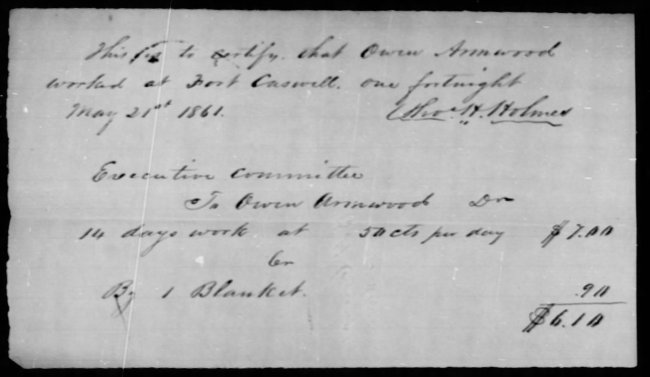 This is to certify that Owen Armwood
worked at Fort Caswell. one fortnight
May 21st 1861. Thos. H. Holmes
Executive Committee
To Owen Armwood Dr
14 days work at 50 cts per day $7.00
Cr
By 1 Blanket. .90
$6.10